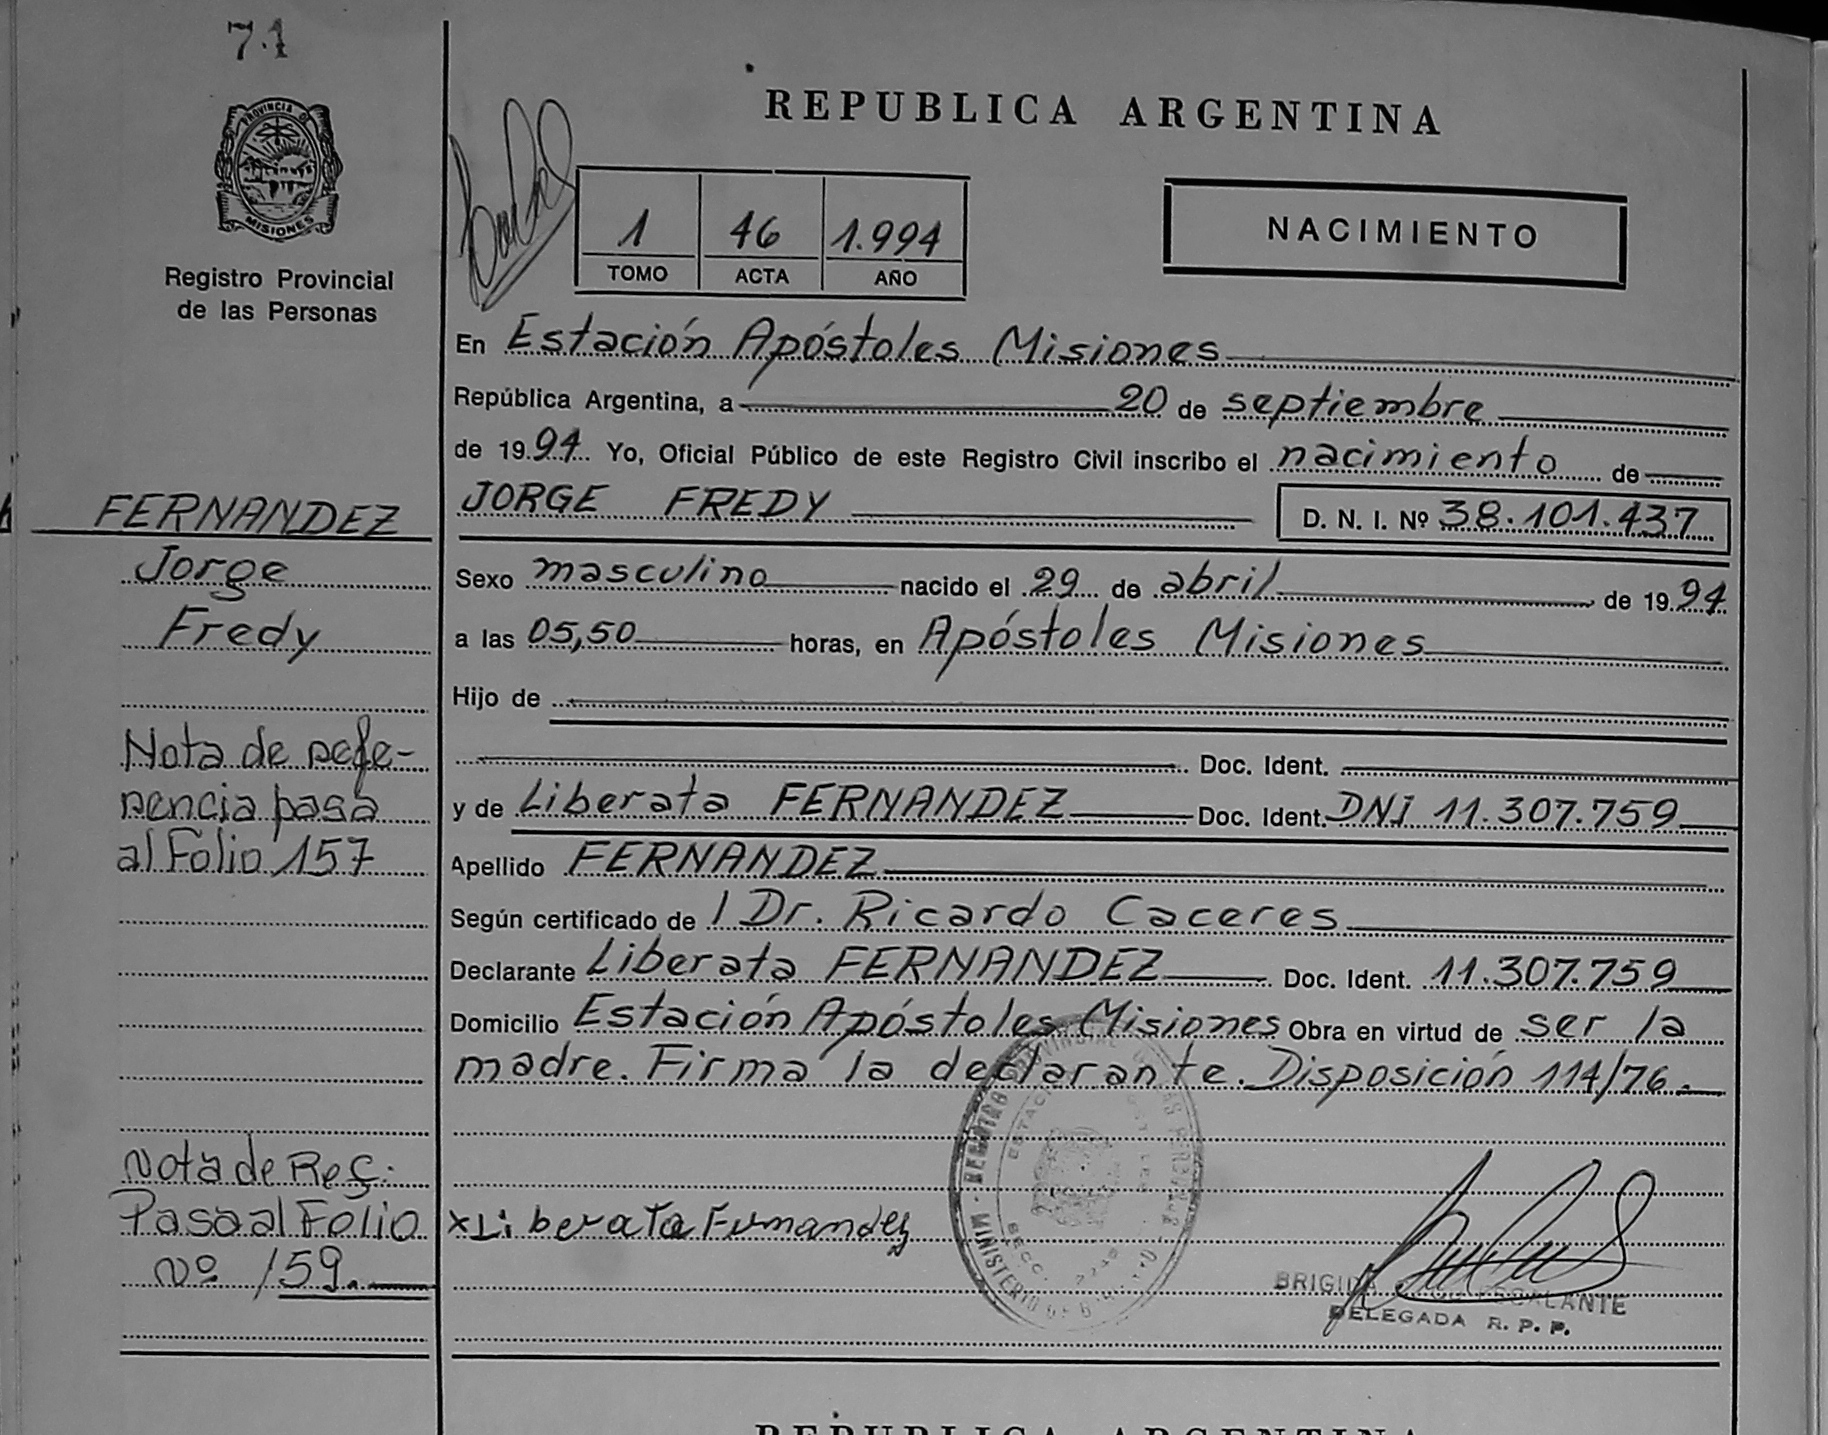 71
PROVINCIA DE
MISIONES
Registro Provincial
de las Personas
FERNANDEZ
Jorge
Fredy
Nota de refe-
rencia pasa
al Folio 157
Nota de Ref:
Pasa al Folio
Nº 159.
REPUBLICA ARGENTINA
1 46 1.994
TOMO ACTA AÑO
NACIMIENTO
En Estación Apóstoles Misiones
República Argentina, a 20 de septiembre
de 1994. Yo, Oficial Público de este Registro Civil inscribo el nacimiento de
JORGE FREDY D. N. I. Nº 38.101.437
Sexo masculino nacido el 29 de abril de 1994
a las 05,50 horas, en Apóstoles Misiones
Hijo de
Doc. Ident.
y de Liberata FERNANDEZ Doc. Ident. DNI 11.307.759
Apellido FERNANDEZ
Según certificado de l Dr. Ricardo Caceres
Declarante Liberata FERNANDEZ Doc. Ident. 11.307.759
Domicilio Estación Apóstoles Misiones Obra en virtud de ser la
madre. Firma la declarante. Disposición 114/76.
x Liberata Fernandez
BRIGIDA ESCALANTE
DELEGADA R. P. P.
REPUBLICA ARGENTINA